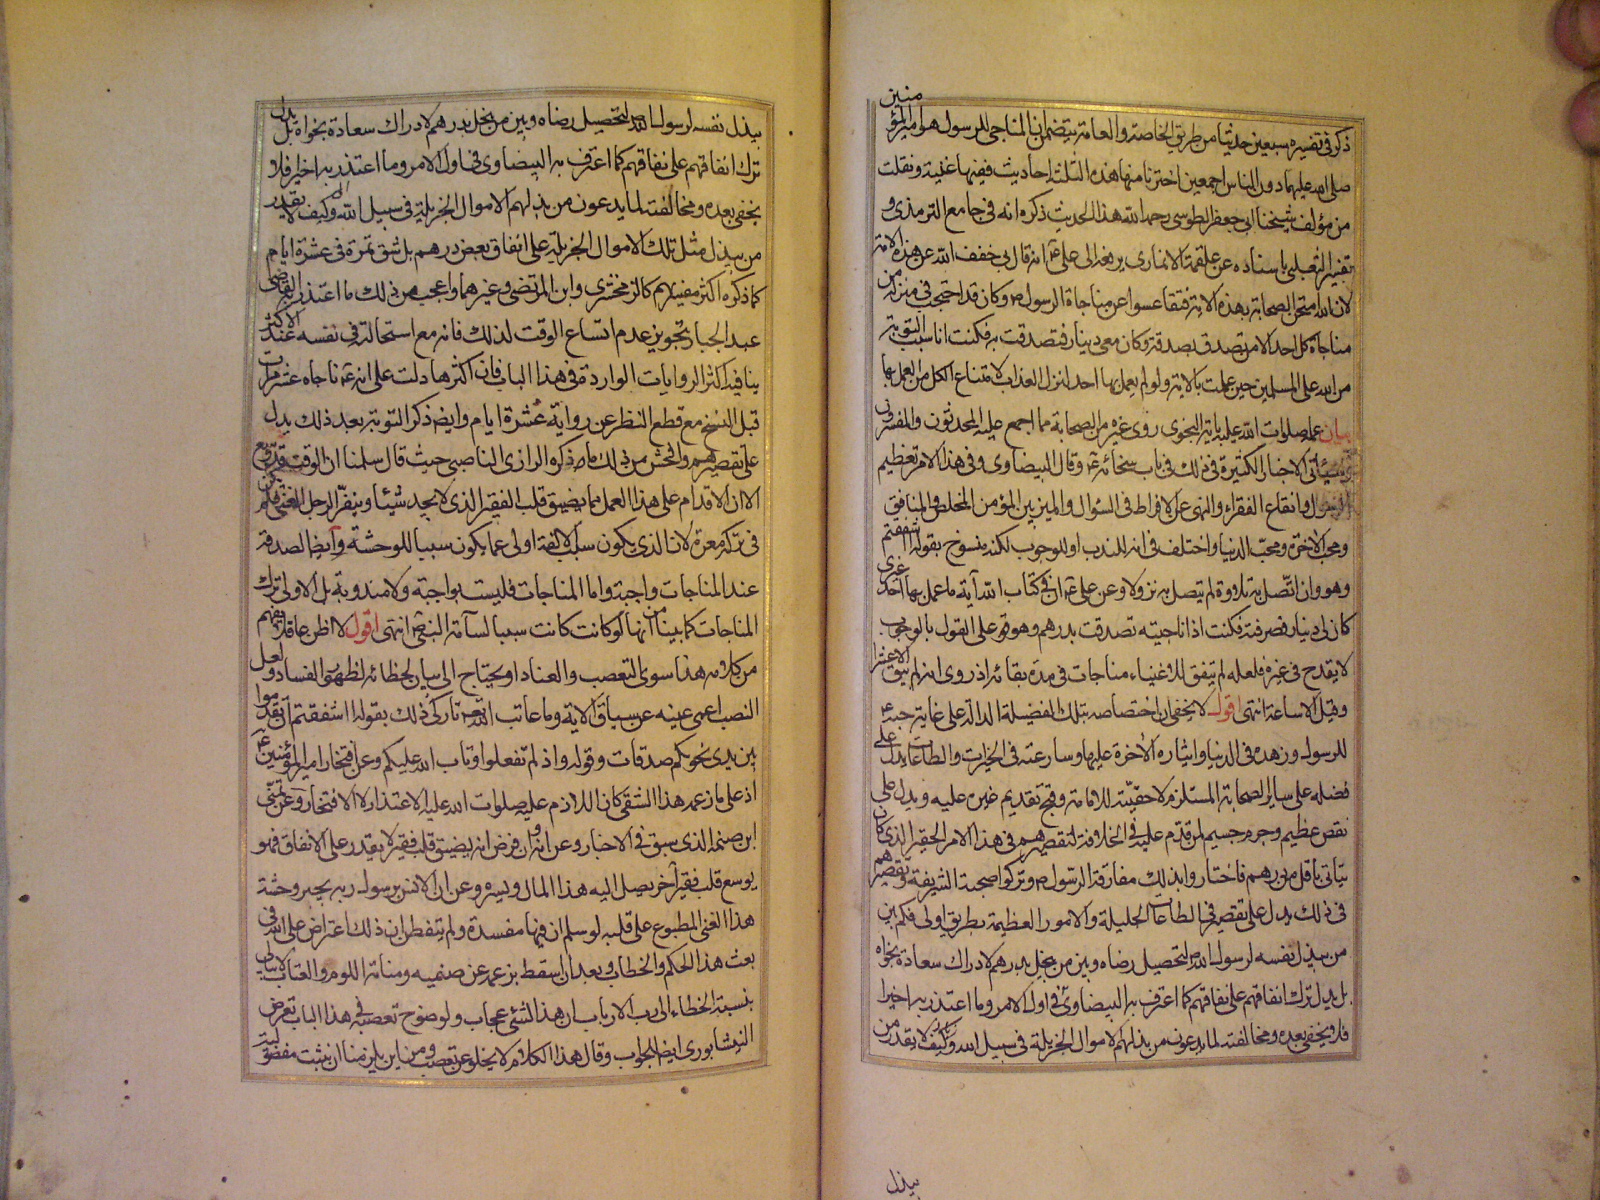 ذكر فى تفسيره سبعين حديثا من طريق الخاصة والعامة يتضمن ان المناجى للرسول هو امير المؤمنين
صلى الله عليهما دون الناس اجمعين اخترنا منها هذه الثلثة احاديث ففيها غنية ونقلت
من مؤلف شيخنا ابى جعفر الطوسى رحمه الله هذا الحديث ذكره انه فى جامع الترمذى و
تفسير الثعلبى باسناده عن علقمة الانمارى يرفعه الى على ع انه قال بى خفف الله عن هذه الامة
لان الله امتحن الصحابة بهذه الاية فتقاعسوا عن مناجاة الرسول ص وكان قد احتجب فى منزله من
مناجاة كل احد الا من تصدق بصدقة وكان معى دينار فتصدقت به فكنت انا سبب التوبة
من الله على المسلمين حين عملت بالاية ولو لم يعمل بها احد لنزل العذاب لامتناع الكل من العمل بها
بيان عمله صلوات الله عليه باية النجوى روى غيره من الصحابة مما اجمع عليه المحدثون والمفسرون
وسيأتى الاخبار الكثيرة فى ذلك فى باب سخائه ع وقال البيضاوى وفى هذا الامر تعظيم
الرسول وانتفاع الفقراء والنهى عن الافراط فى السؤال والميز بين المؤمن المخلص والمنافق
ومحب الاخرة ومحب الدنيا واختلف فى انه للندب او للوجوب لكنه منسوخ بقوله ااشفقتم
وهو وان اتصل به تلاوة لم يتصل به نزولا وعن على ع ان فى كتاب الله آية ما عمل بها احد غيرى
كان لى دينار فصرفته فكنت اذا ناجيته تصدقت بدرهم وهو على القول بالوجوب
لا يقدح فى غيره فلعله لم يتفق للاغنياء مناجات فى مدة بقائه اذ روى انه لم يبق الا عشرا
وقيل الا ساعة انتهى اقول لا يخفى ان اختصاصه بتلك الفضيلة الدالة على غاية حبه ع
للرسول وزهده فى الدنيا وايثاره الاخرة عليها ومسارعته فى الخيرات والطاعات يدل على
فضله على ساير الصحابة المستلزم لاحقيته للامامة وقبح تقديم غيره عليه ويدل على
نقص عظيم وجرم جسيم لمن تقدم عليه فى الخلافة لتقصيرهم فى هذا الامر الحقير الذى كان
يتأتى باقل من درهم فاختاروا بذلك مفارقة الرسول ص وتركوا صحبته الشريفة وتقصيرهم
فى ذلك يدل على تقصيرهم فى الطاعات الجليلة والامور العظيمة بطريق اولى فكم بين
من يبذل نفسه لرسول الله لتحصيل رضاه وبين من يبخل بدرهم لادراك سعادة نجواه
بل يدل ترك انفاقهم على نفاقهم كما اعترف به البيضاوى فى اول الامر وما اعتذر به اخيرا
فلا يخفى بعده ومخالفته لما يدعون من بذلهم الاموال الجزيلة فى سبيل الله وكيف لا يقدر من
يبذل
يبذل نفسه لرسول الله لتحصيل رضاه وبين من يبخل بدرهم لادراك سعادة نجواه بل يدل
ترك انفاقهم على نفاقهم كما اعترف به البيضاوى فى اول الامر وما اعتذر به اخيرا فلا
يخفى بعده ومخالفته لما يدعون من بذلهم الاموال الجزيلة فى سبيل الله وكيف لا يقدر
من يبذل مثل تلك الاموال الجزيلة على انفاق بعض درهم بل شق تمرة فى عشرة ايام
كما ذكره اكثر مفسريهم كالزمخشرى وابن المرتضى وغيرهما واعجب من ذلك ما اعتذر به القاضى
عبد الجبار بتجويز عدم اتساع الوقت لذلك فانه مع استحالته فى نفسه عند الاكثر
ينافيه اكثر الروايات الواردة فى هذا الباب فان اكثرها دلت على انه ع ناجاه عشر مرات
قبل النسخ مع قطع النظر عن رواية عشرة ايام وايضا ذكر التوبة بعد ذلك يدل
على تقصيرهم وافحش من ذلك ما ذكره الرازى الناصبى حيث قال سلمنا ان الوقت قد وسع
الا ان الاقدام على هذا العمل مما يضيق قلب الفقير الذى لا يجد شيئا وينفر الرجل الغنى فلم يكن
فى تركه معرة لان الذى يكون سبب الالفة اولى عما يكون سببا للوحشة وايضا الصدقة
عند المناجات واجبة واما المناجات فليست بواجبة ولا مندوبة بل الاولى ترك
المناجات كما بينا من انها لو كانت كانت سببا لسآمة النبى ص انتهى اقول لا اظن عاقلا يفهم
من كلامه هذا سوى التعصب والعناد او يحتاج الى بيان لخطائه لظهور الفساد ولعل
النصب اعمى عينه عن سياق الاية وما عاتب الله تعالى تاركى ذلك بقوله ااشفقتم ان تقدموا
بين يدى نجويكم صدقات وقوله واذ لم تفعلوا وتاب الله عليكم وعن افتخار امير المؤمنين ع
اذ على ما زعمه هذا الشقى كان اللازم عليه صلوات الله عليه الاعتذار لا الافتخار وعن تمنى
ابن صنمه الذى سبق فى الاخبار وعن انه وان فرض انه يضيق قلب فقير لا يقدر على الانفاق فهو
يوسع قلب فقير آخر يصل اليه هذا المال ويسره وعن ان الانس برسول ربه يجبر وحشة
هذا الغنى المطبوع على قلبه لو سلم ان فيها مفسدة ولم يتفطن ان ذلك اعتراض على الله فى
بعث هذا الحكم والخطاب وبعد ان اسقط بزعمه عن صنميه ومناته اللوم والعتاب لا يبالى
بنسبة الخطاء الى رب الارباب ان هذا لشئ عجاب ولوضوح تعصبه فى هذا الباب تعرض
النيشابورى ايضا للجواب وقال هذا الكلام لا يخلو عن تعصب ومن اين يلزمنا ان نثبت مفضولية